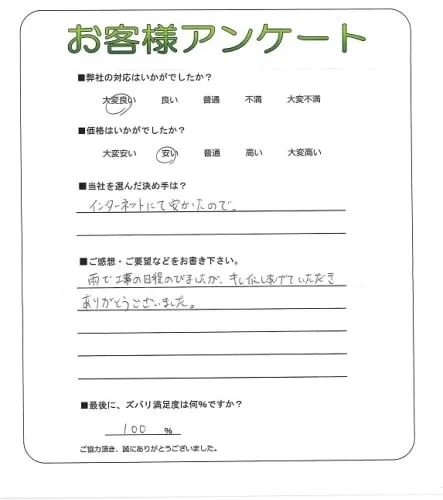 お客様アンケート
■弊社の対応はいかがでしたか?
大変良い 良い 普通 不満 大変不満
■価格はいかがでしたか?
大変安い 安い 普通 高い 大変高い
■当社を選んだ決め手は?
インターネットにて安かたので。
■ご感想・ご要望などをお書き下さい。
雨で工事の日程のびましたが、キレイに仕上げていただき
ありがとうございました。
■最後に、ズバリ満足度は何%ですか?
100 %
ご協力頂き、誠にありがとうございました。